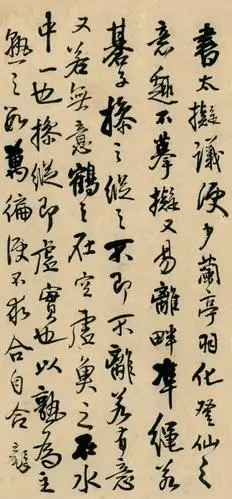 書太擬議便少蘭亭羽化登仙之
意趣不摹擬又易離畔準繩若
碁子操之縱之不即不離若有意
又若無意鶴之在空虛魚之在水
中一也操縱即虛實也以熟為主
熟之萬徧便不求合自合 王鐸